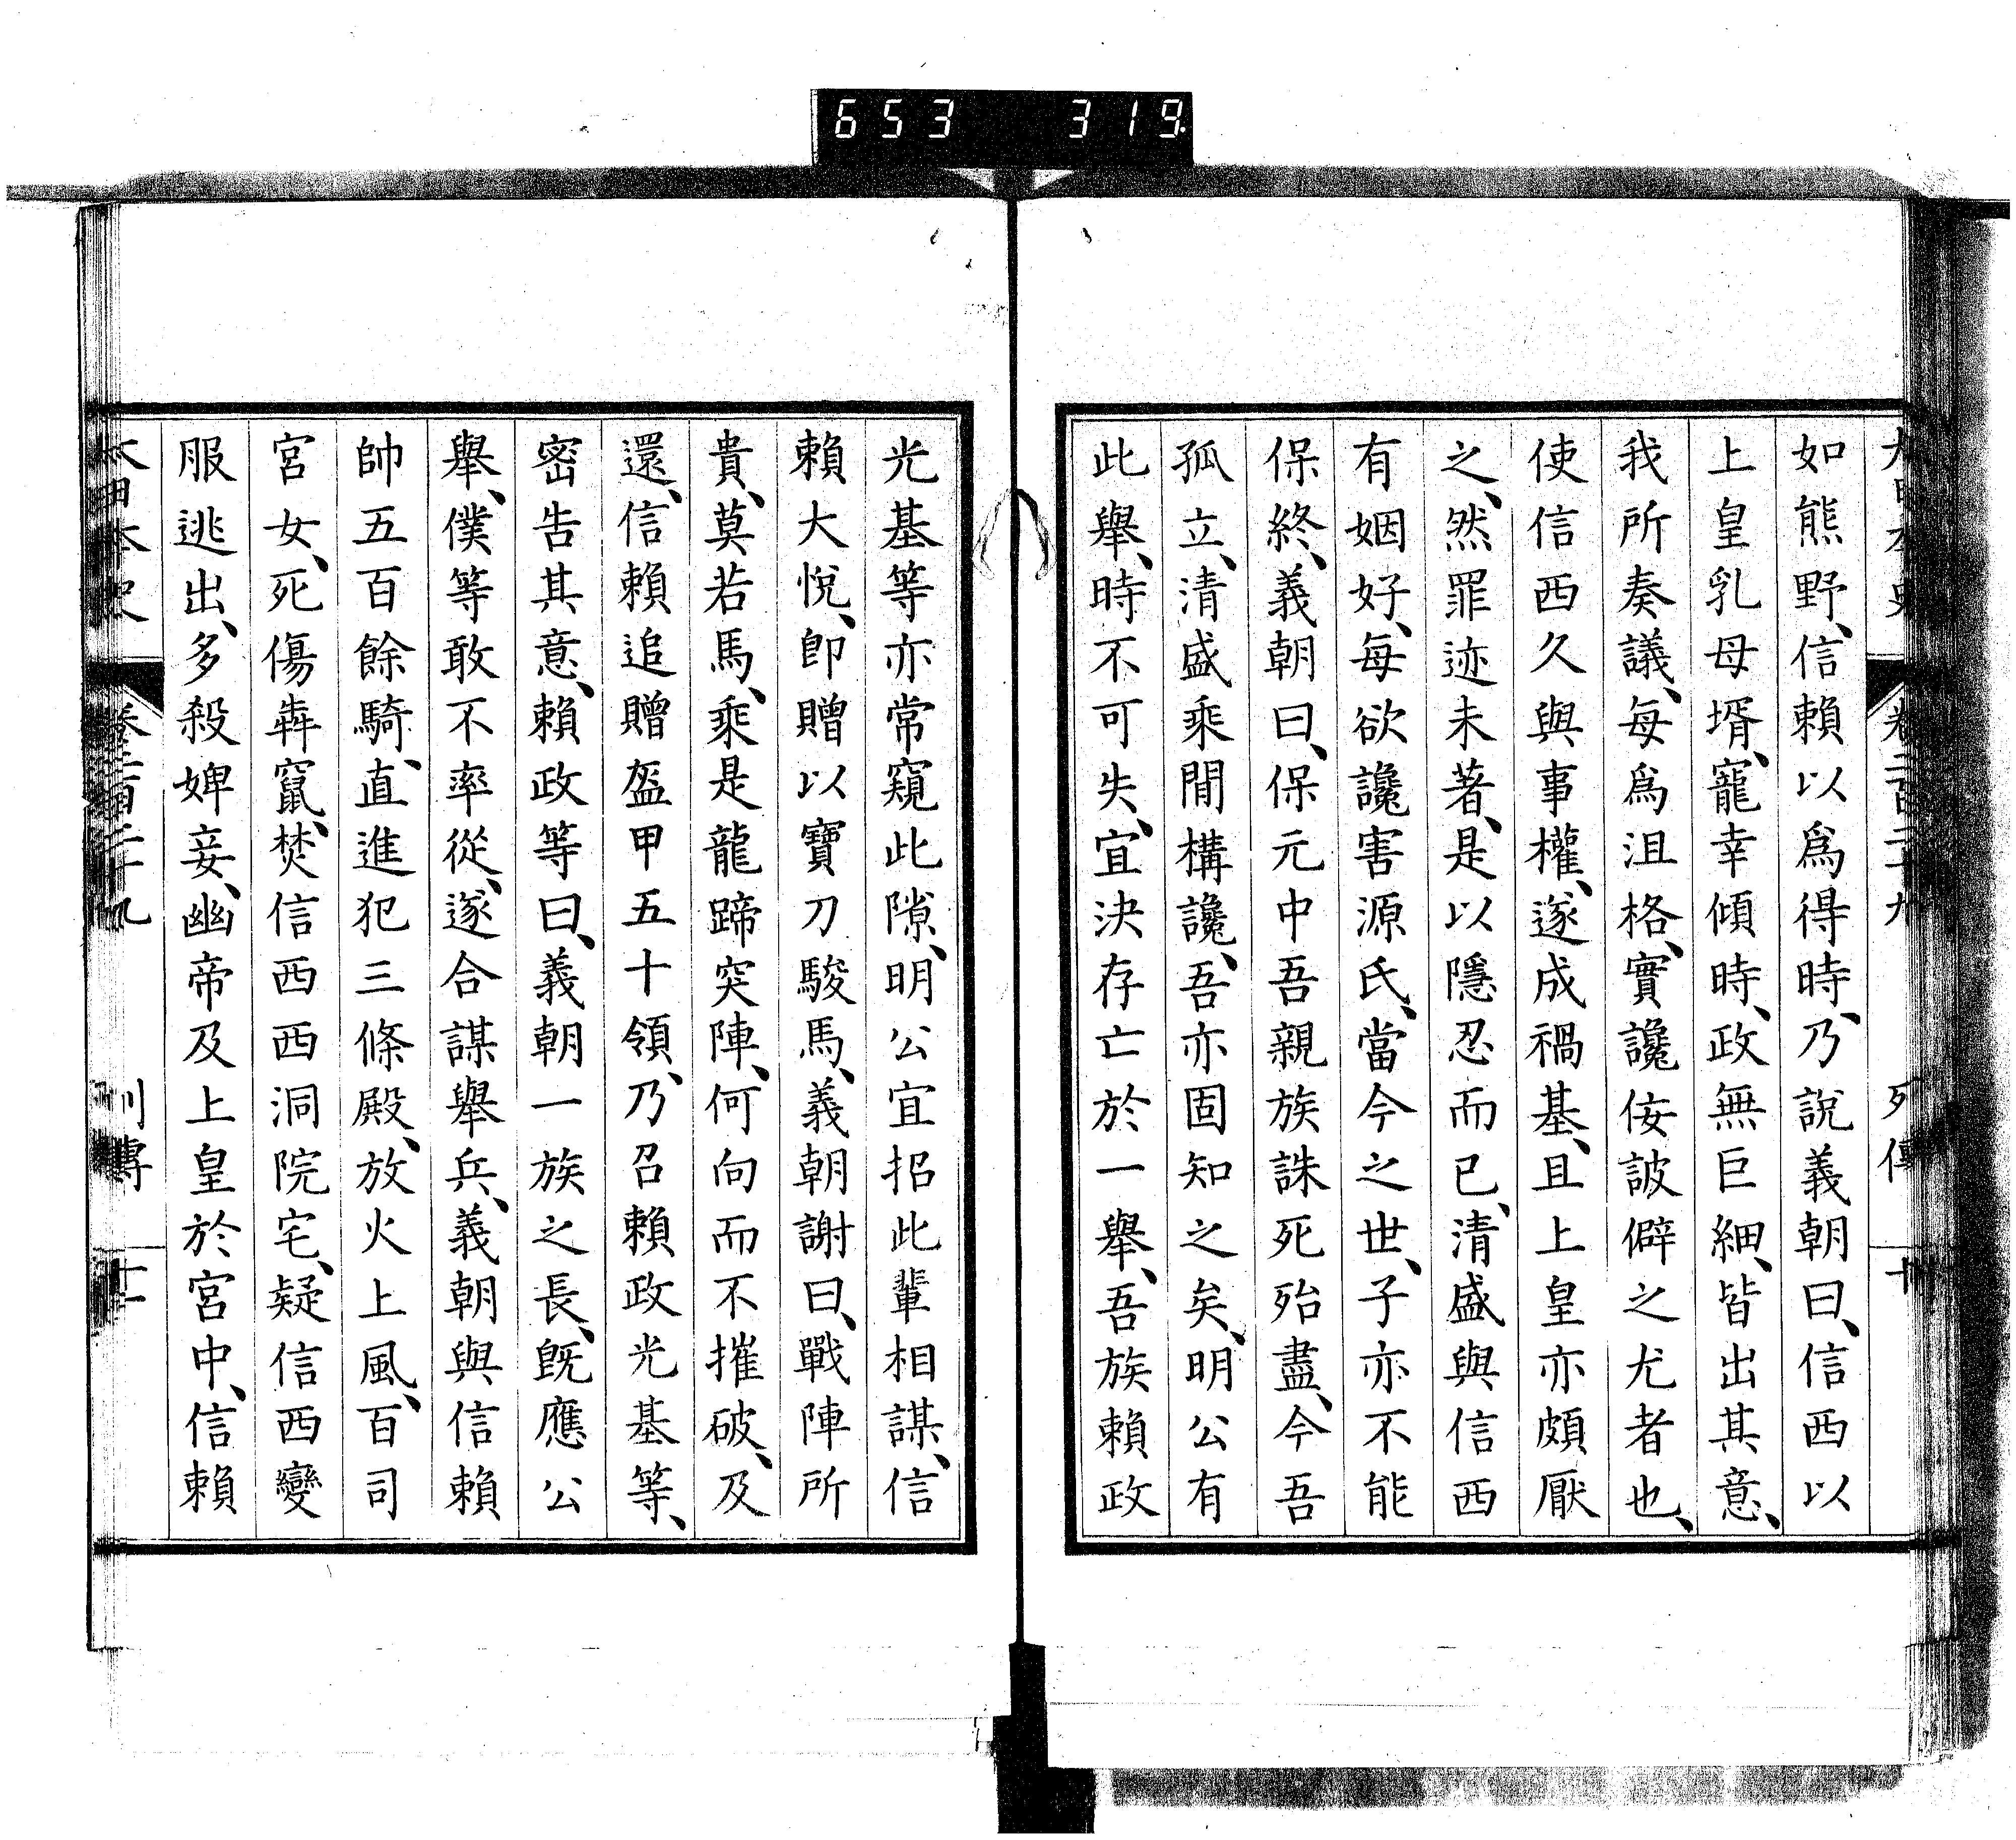 653 319
大日本史 卷二百二十九 列傳 十
如熊野、信賴以爲得時、乃說義朝曰、信西以
上皇乳母壻、寵幸傾時、政無巨細、皆出其意、
我所奏議、每爲沮格、實讒佞詖僻之尤者也、
使信西久與事權、遂成禍基、且上皇亦頗厭
之、然罪迹未著、是以隱忍而已、清盛與信西
有姻好、每欲讒害源氏、當今之世、子亦不能
保終、義朝曰、保元中吾親族誅死殆盡、今吾
孤立、清盛乘間構讒、吾亦固知之矣、明公有
此舉、時不可失、宜決存亡於一舉、吾族賴政
光基等亦常窺此隙、明公宜招此輩相謀、信
賴大悅、卽贈以寶刀駿馬、義朝謝曰、戰陣所
貴、莫若馬、乘是龍蹄突陣、何向而不摧破、及
還、信賴追贈盔甲五十領、乃召賴政光基等、
密告其意、賴政等曰、義朝一族之長、旣應公
舉、僕等敢不率從、遂合謀舉兵、義朝與信賴
帥五百餘騎、直進犯三條殿、放火上風、百司
宮女、死傷犇竄、焚信西西洞院宅、疑信西變
服逃出、多殺婢妾、幽帝及上皇於宮中、信賴
大日本史 卷二百二十九 列傳 十一